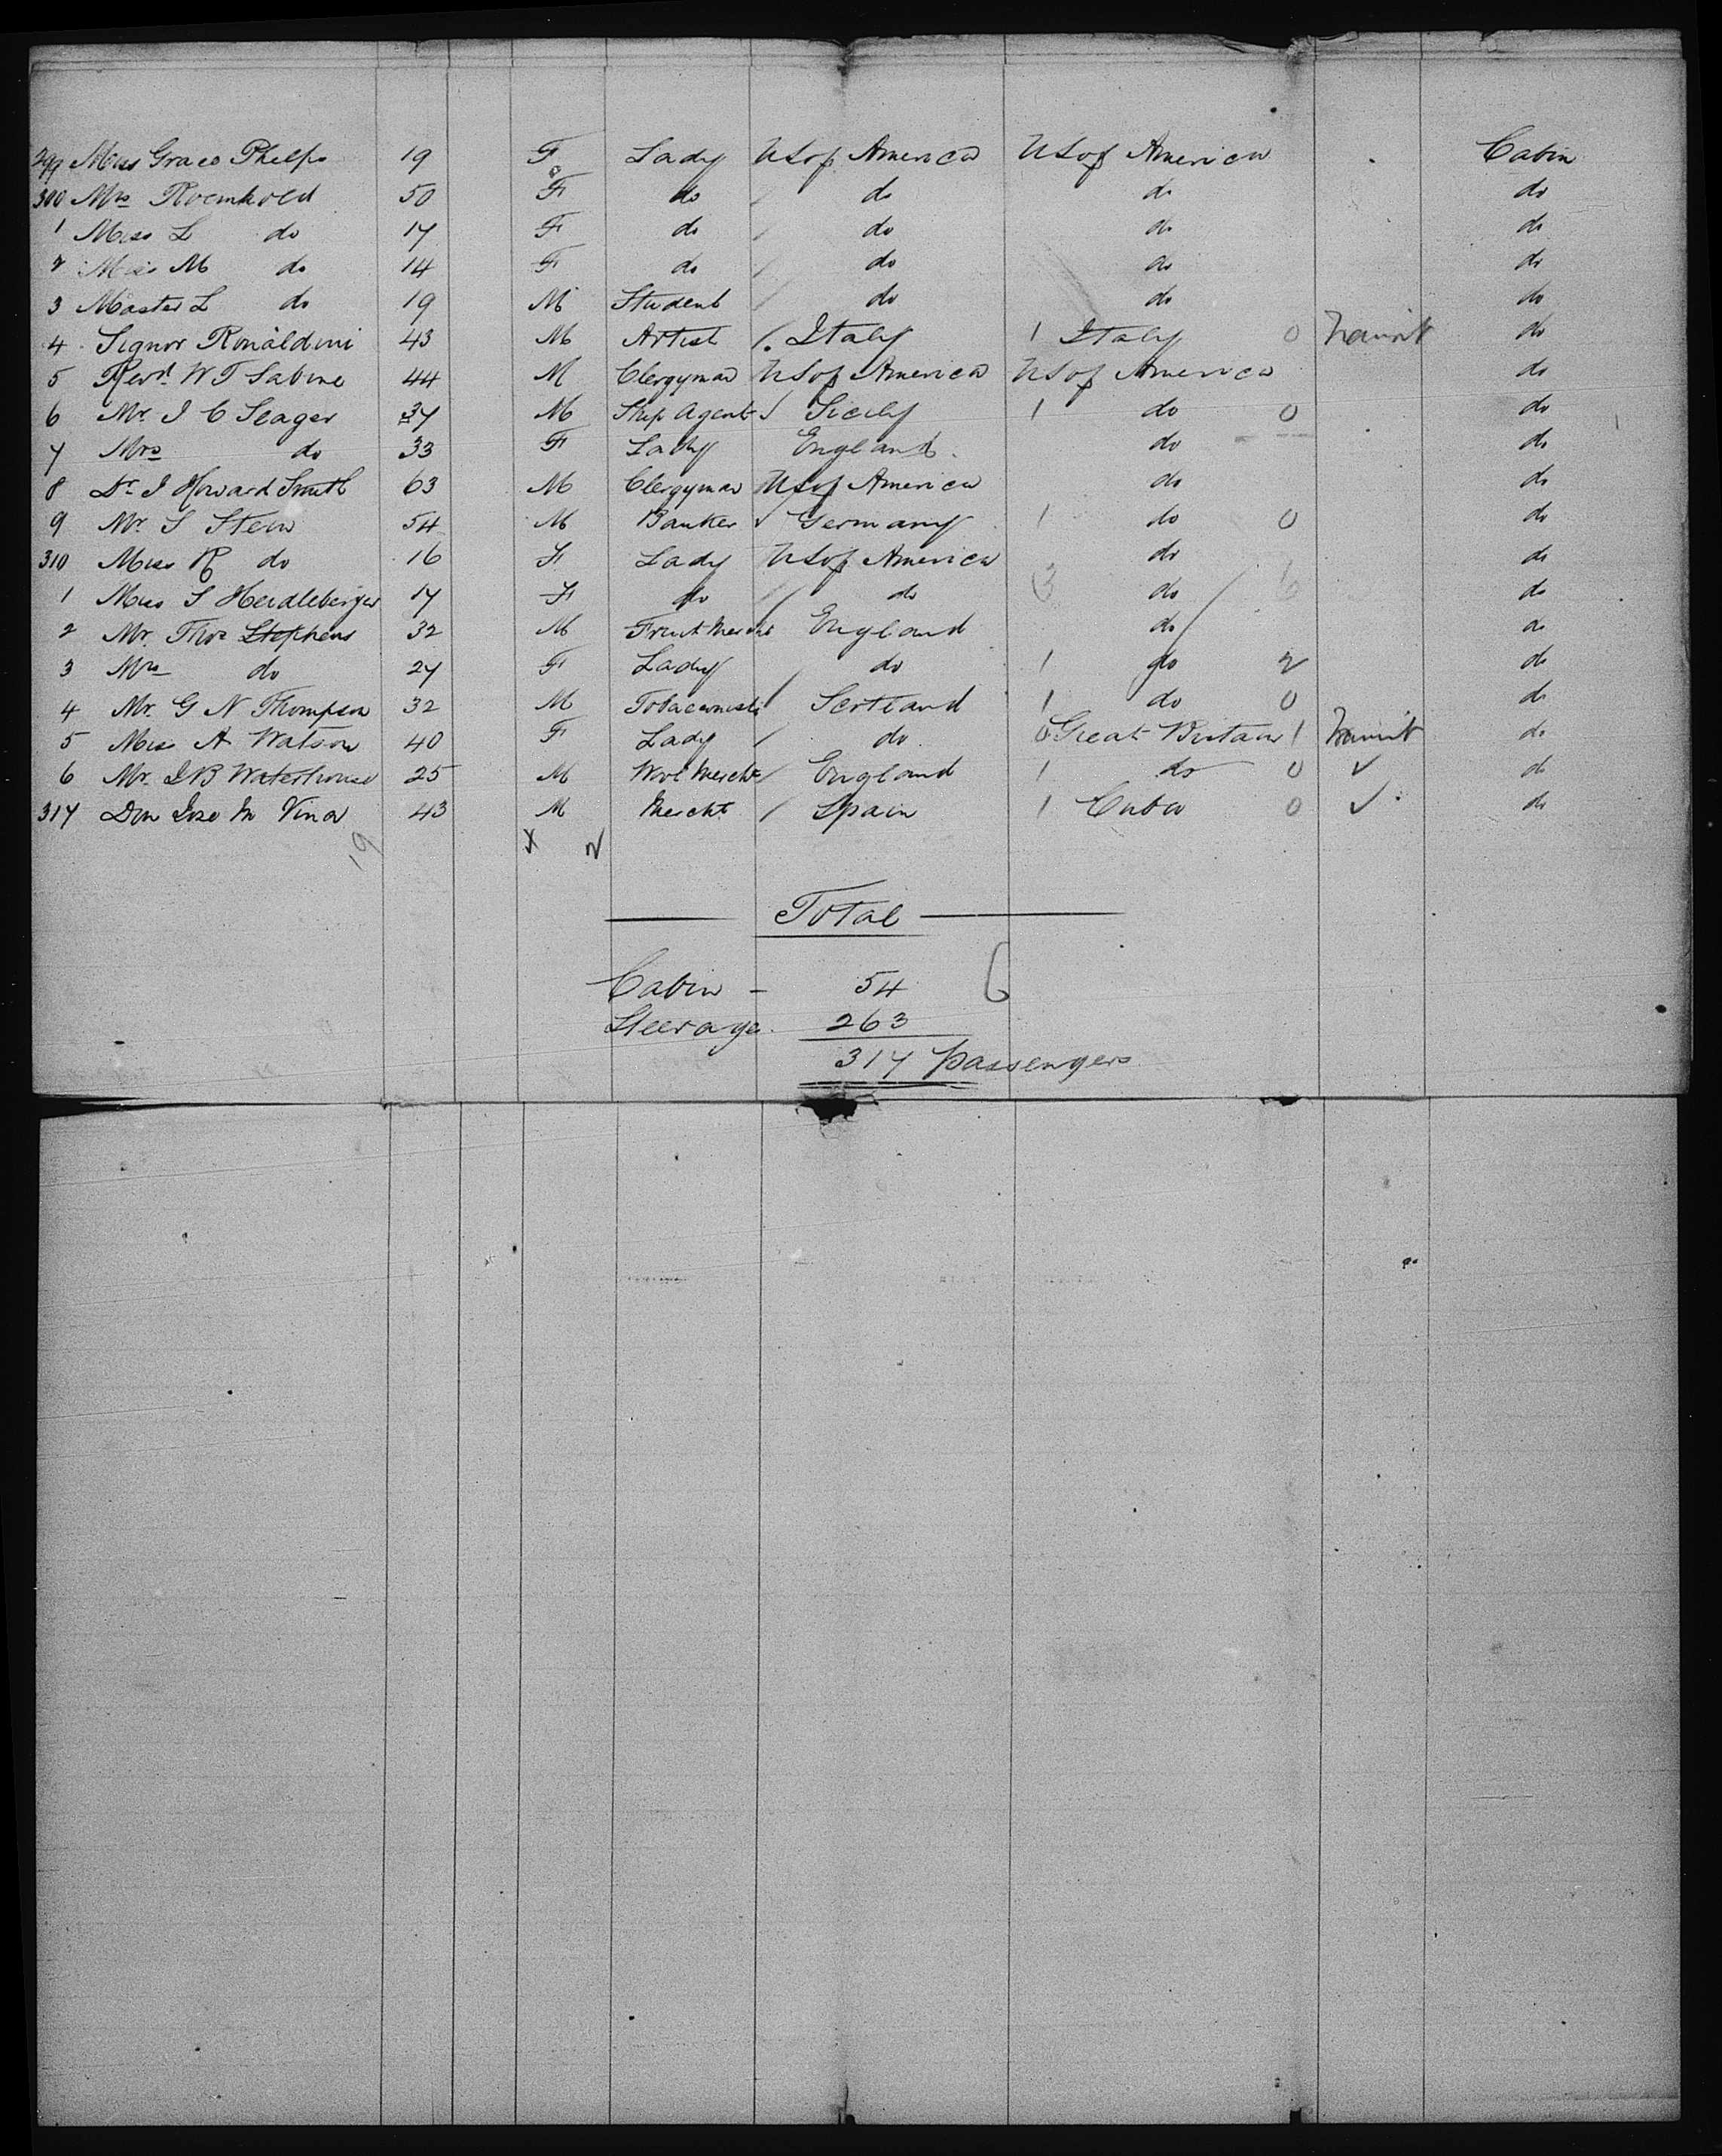 299 Miss Grace Phelps 19 F Lady U S of America U S of America Cabin
300 Mrs Roemhold 50 F do do do do
1 Miss L do 17 F do do do do
2 Miss M do 14 F do do do do
3 Master L do 19 M Student do do do
4 Signor Ronaldini 43 M Artist Italy 1 Italy 0 Transit do
5 Revd W T Sabine 44 M Clergyman U S of America U S of America do
6 Mr J C Seager 37 M Ship Agent Sicily 1 do 0 do
7 Mrs do 33 F Lady England do do
8 Dr J Howard Smith 63 M Clergyman U S of America do do
9 Mr S Stern 54 M Banker Germany 1 do 0 do
310 Miss R do 16 F Lady U S of America do do
1 Miss S Heidleberger 17 F do do do do
2 Mr Thos Stephens 32 M Fruit Mercht England do do
3 Mrs do 27 F Lady do 1 do 2 do
4 Mr G N Thompson 32 M Tobacconist Scotland 1 do 0 do
5 Miss A Watson 40 F Lady do 0 Great Britain 1 Transit do
6 Mr J B Waterhouse 25 M Wool Mercht England 1 do 0 ✓ do
317 Don Jose M Vina 43 M Mercht Spain 1 Cuba 0 ✓ do
19 x 2
Total
Cabin - 54 6
Steerage 263
317 Passengers